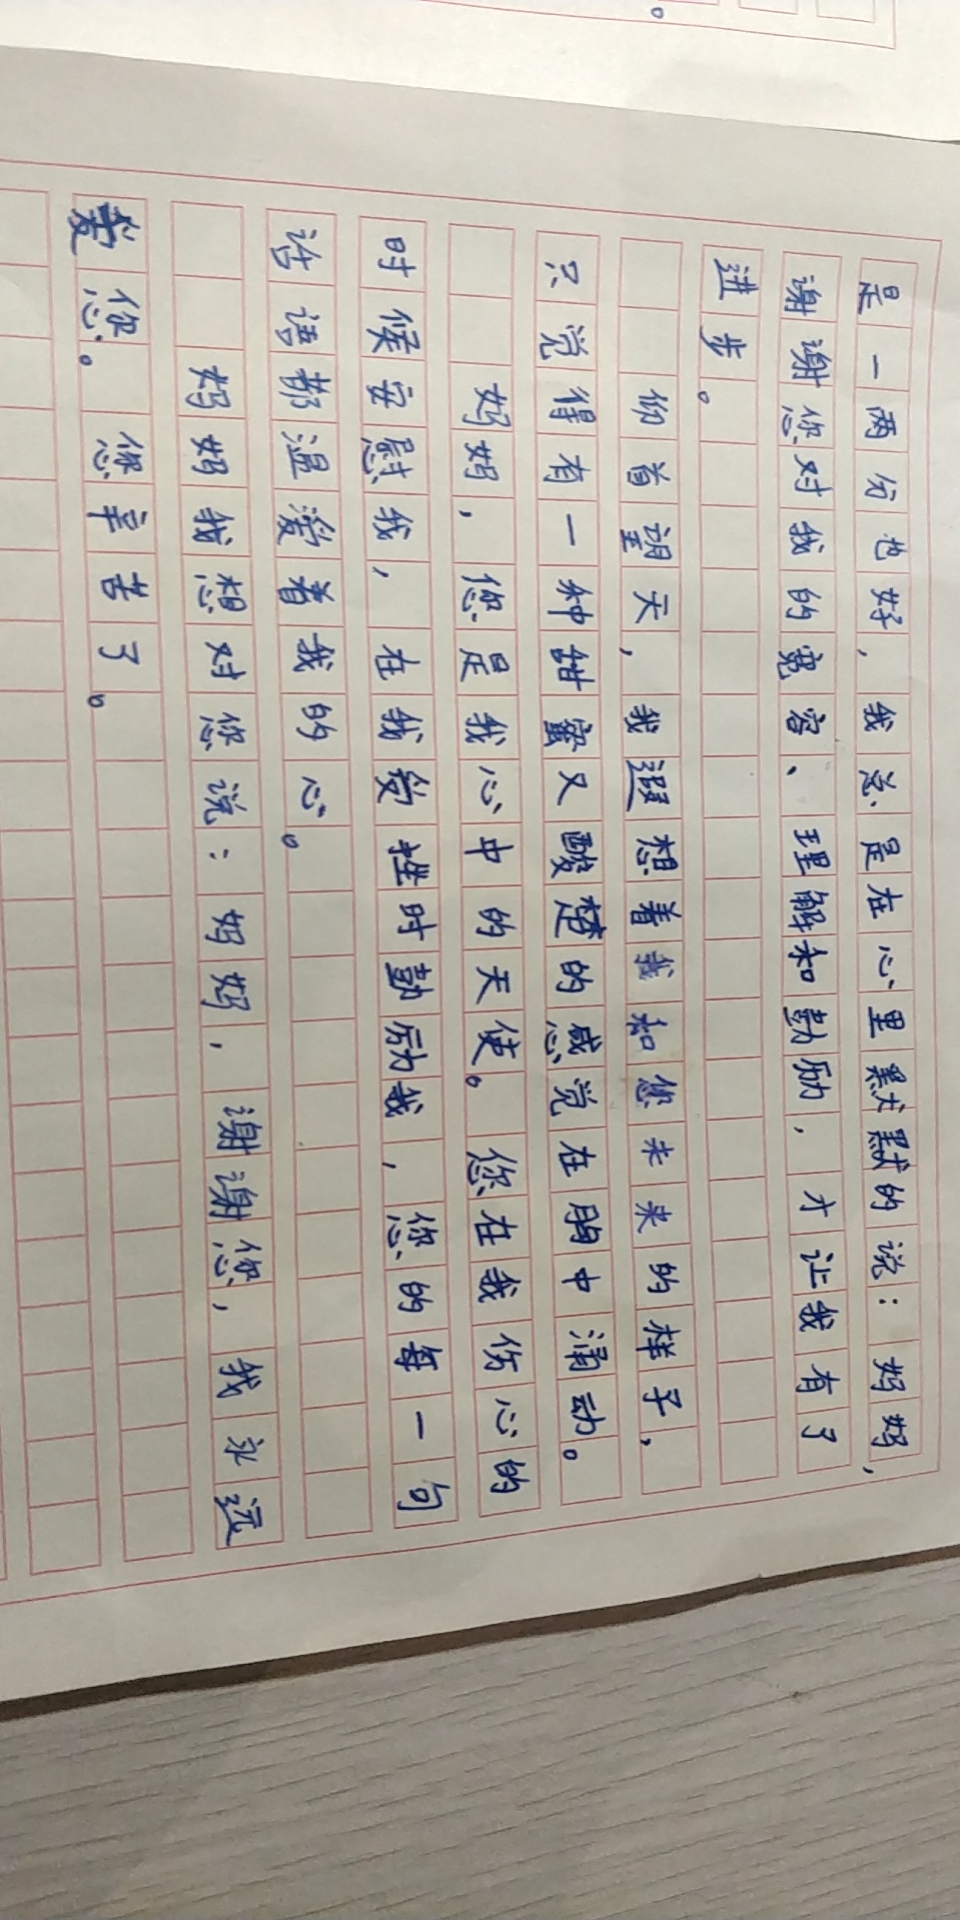 是一两分也好，我总是在心里默默的说：妈妈，
谢谢您对我的宽容、理解和鼓励，才让我有了
进步。
仰首望天，我遐想着我和您未来的样子，
只觉得有一种甜蜜又酸楚的感觉在胸中涌动。
妈妈，您是我心中的天使。您在我伤心的
时候安慰我，在我受挫时鼓励我，您的每一句
话语都温爱着我的心。
妈妈我想对您说：妈妈，谢谢您，我永远
爱您。您辛苦了。